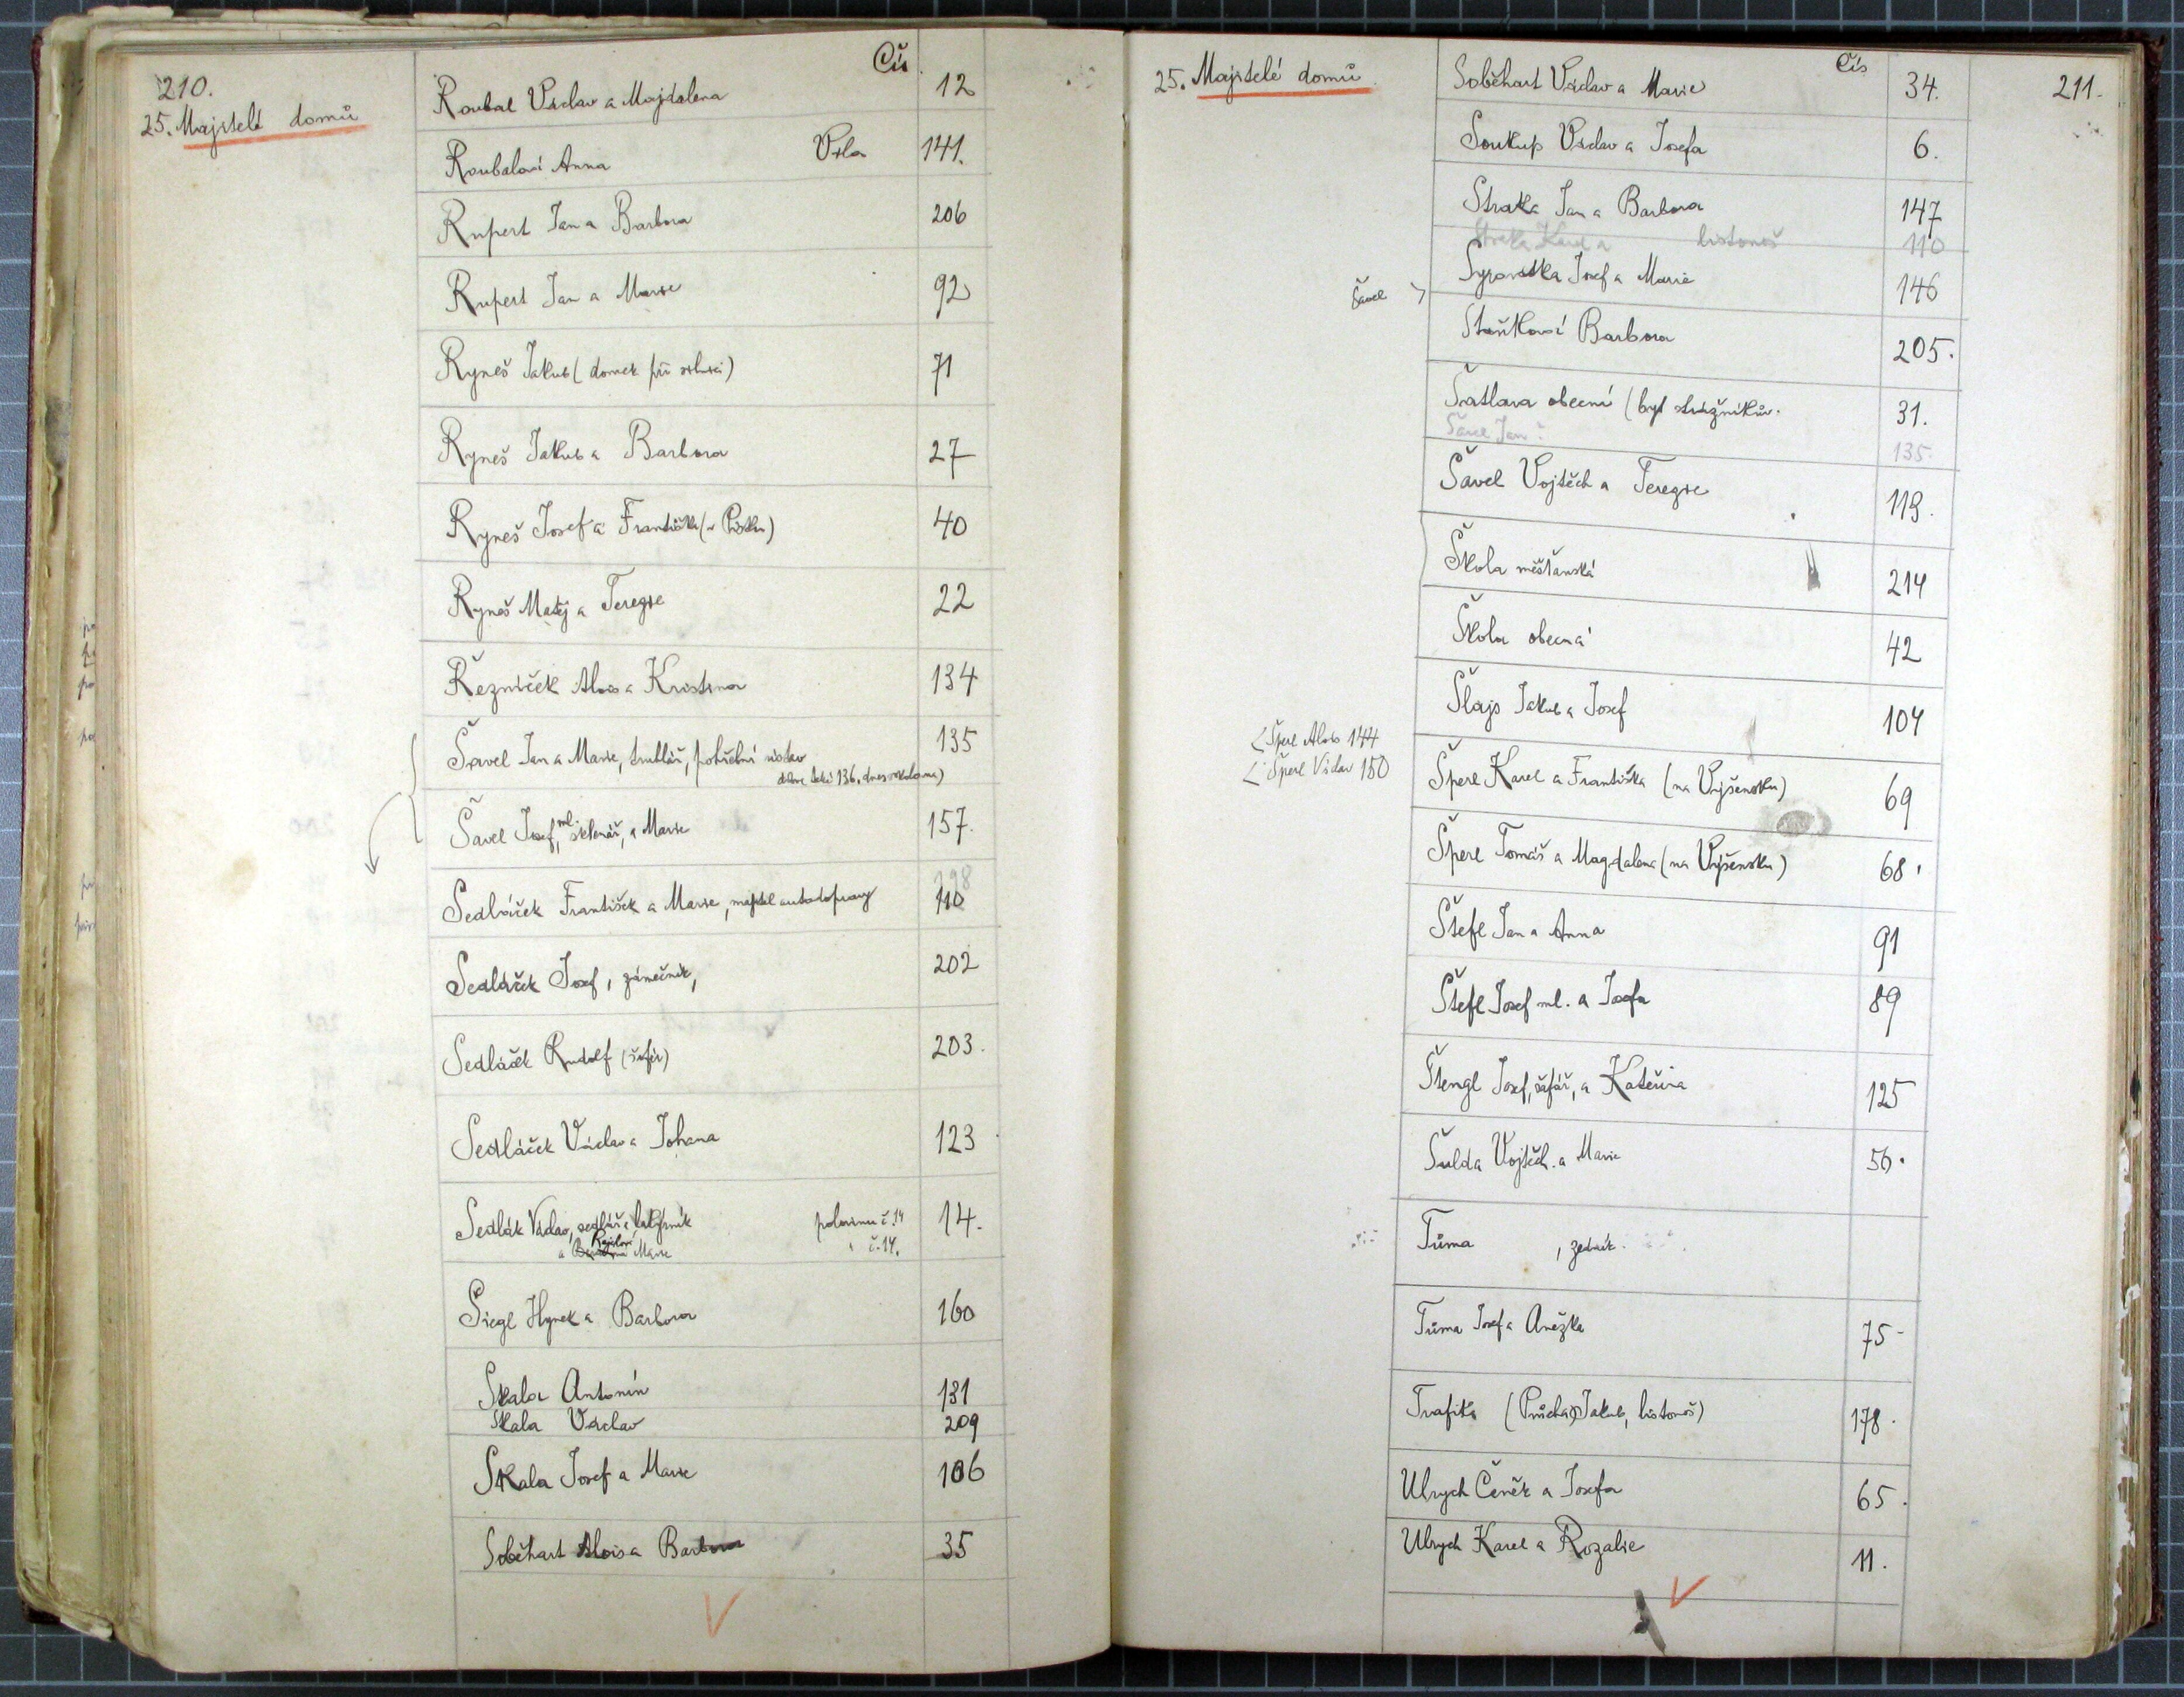 210.
25. Majitelé domů
Čís
Roubal Václav a Majdalena 12
Roubalová Anna Vila 141.
Rupert Jan a Barbora 206
Rupert Jan a Marie 92
Ryneš Jakub (domek při silnici) 71
Ryneš Jakub a Barbora 27
Ryneš Josef a Františka (v Písku) 40
Ryneš Matěj a Terezie 22
Řezníček Alois a Kristina 134
Šavel Jan a Marie, truhlář, pohřební ústav 135
136. dnes
Šavel Josef, ml. sklenář, a Marie 157.
198
Sedláček František a Marie, majitel autodopravy 110
Sedláček Josef, zámečník, 202
Sedláček Rudolf (šofér) 203.
Sedláček Václav a Johana 123
Sedlák Václav, sedlář a lakýrník polovinu č. 14 14.
a Marie " č. 14.
Siegl Hynek a Barbora 160
Skala Antonín 131
Skala Václav 209
Skala Josef a Marie 106
Soběhart Alois a Barbora 35
25. Majitelé domů
Čís
211.
Soběhart Václav a Marie 34.
Soukup Václav a Josefa 6.
Straka Jan a Barbora 147
Straka Karel a listonoš 110
Syrovátka Josef a Marie 146
Šavel
Staňková Barbora 205.
Šatlava obecní (byt strážníkův. 31.
Šavel Jan 135.
Šavel Vojtěch a Terezie 119.
Škola měšťanská 214
Škola obecná 42
Šlajs Jakub a Josef 104
Šperl Alois 144
Šperl Václav 150
Šperl Karel a Františka (na Vyšensku) 69
Šperl Tomáš a Magdalena (na Vyšensku) 68.
Štefl Jan a Anna 91
Štefl Josef ml. a Josefa 89
Štengl Josef, šafář, a Kateřina 125
Šulda Vojtěch a Marie 56.
Tůma , zedník.
Tůma Josef a Anežka 75-
Trafika (Průcha Jakub, listonoš) 178.
Ulrych Čeněk a Josefa 65.
Ulrych Karel a Rozalie 11.